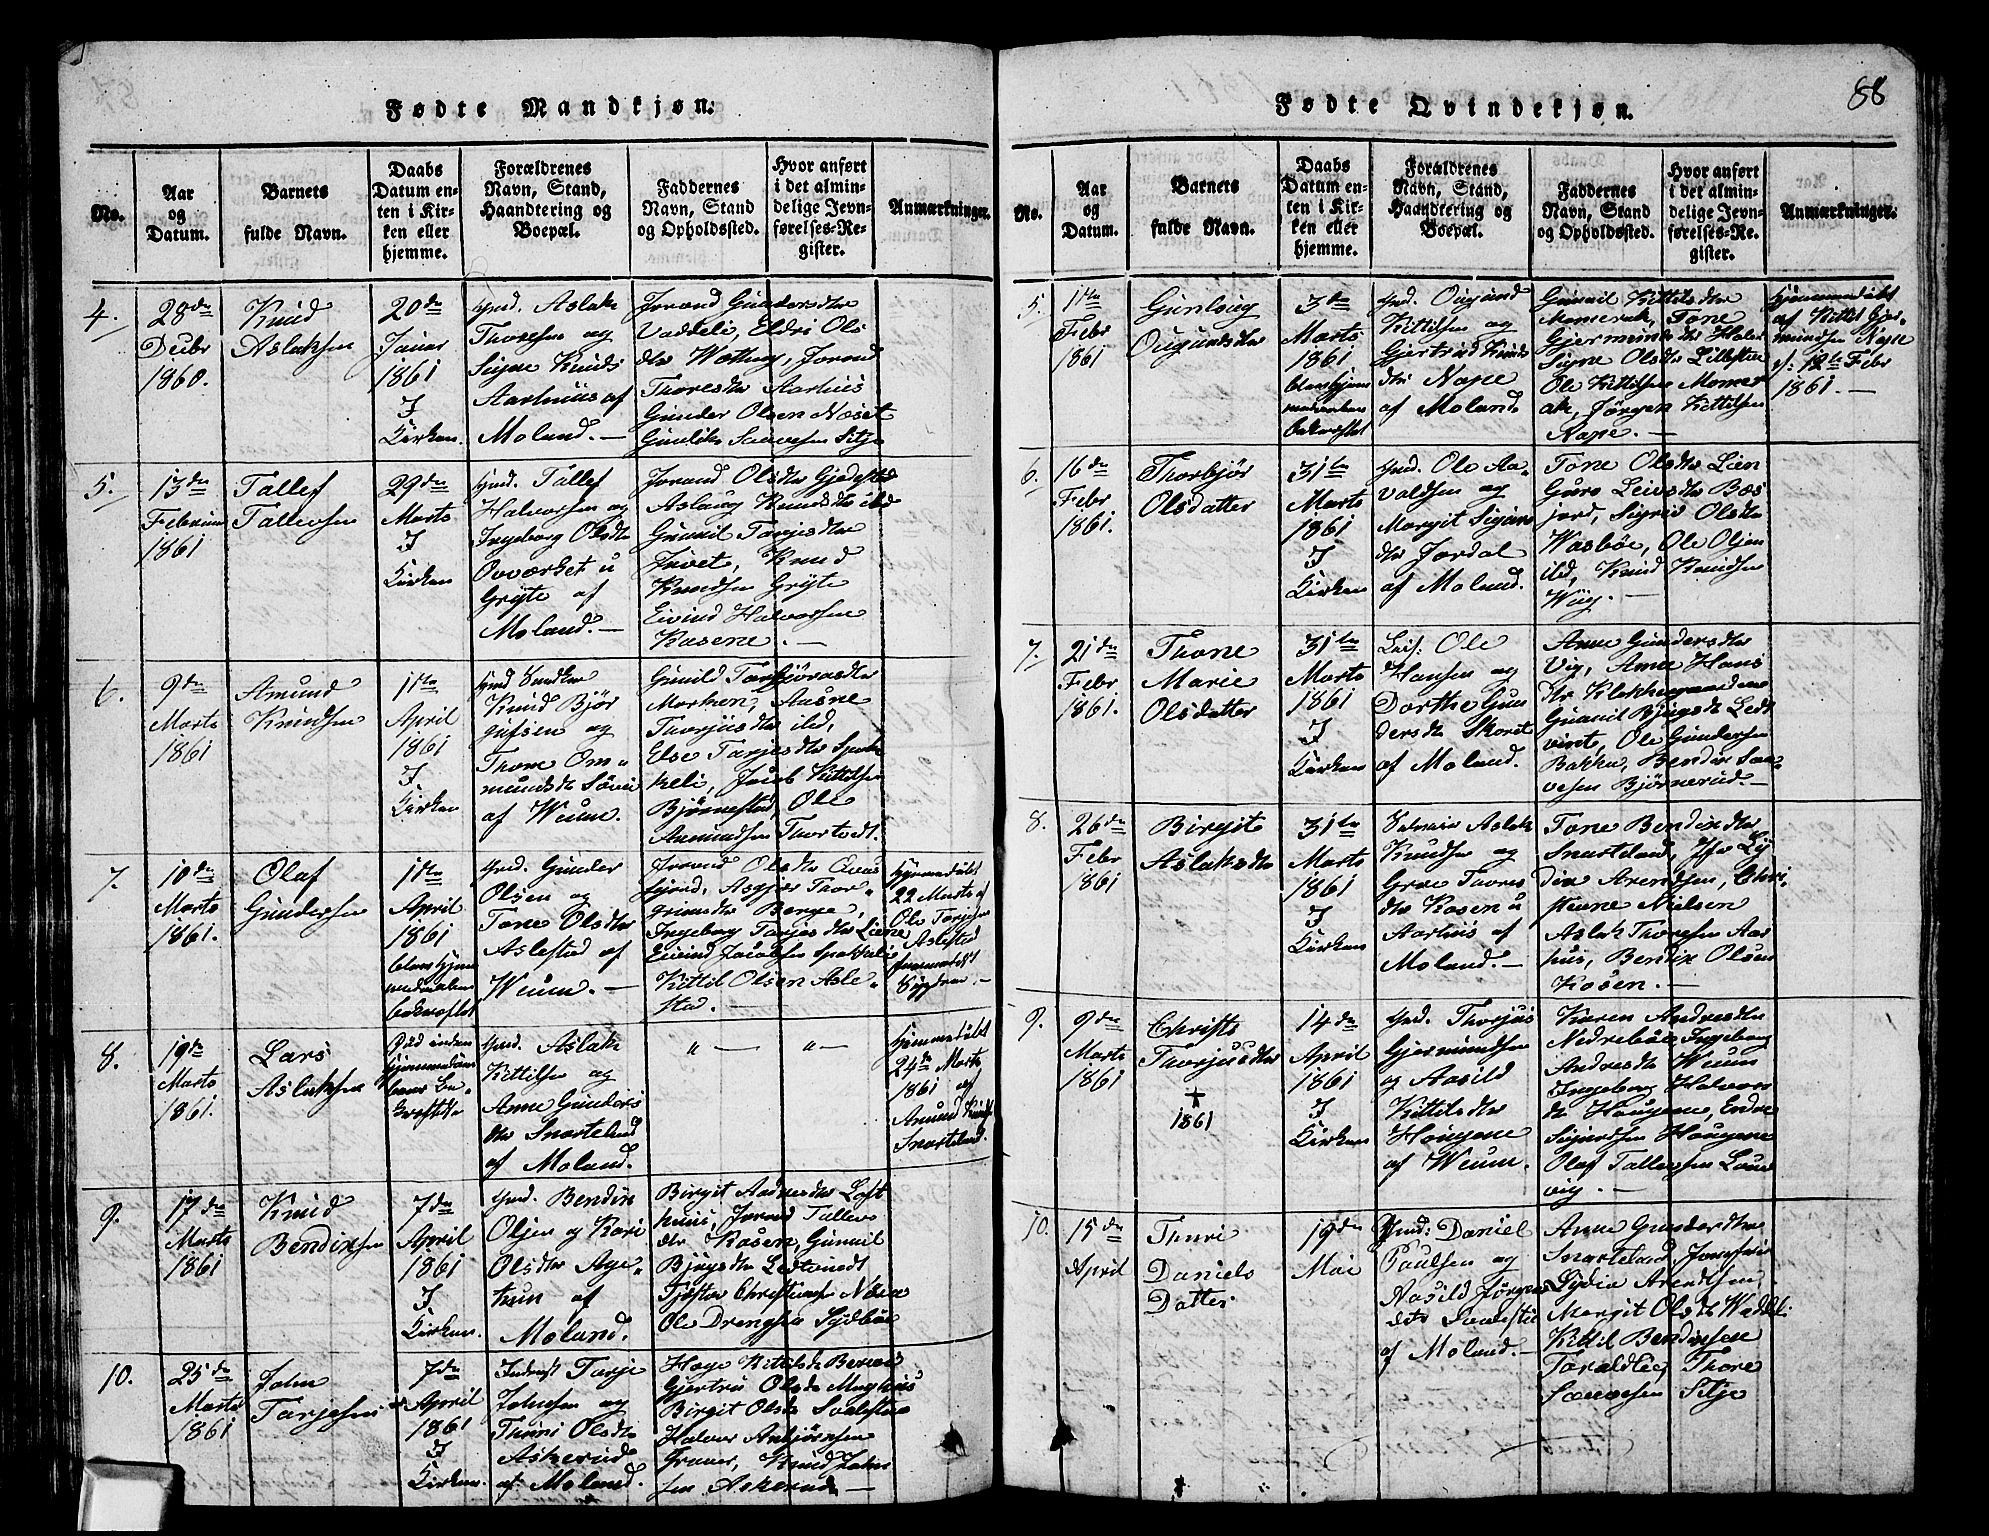 88
Fødte Mandkjøn.
No.
Aar
og
Datum.
Barnets
fulde Navn.
Daabs
Datum en-
ten i Kir-
ken eller
hjemme.
Forældrenes
Navn, Stand,
Haandtering og
Boepæl.
Faddernes
Navn, Stand
og Opholdssted.
Hvor anført
i det almin-
delige Jevn-
førelses-Re-
gister.
Anmærkninger.
4.
28de
Decbr
1860.
Knud
Aslaksen
20de
Januar
1861
I
Kirken.
Gmd. Aslak
Thoresen og
Signe Knuds
Aarhuus af
Moland.
Jorand Gundersdtr
Vaddeli, Eldri Ols
dtr
Jorand
Thoresdtr Aarhuus
Gunder Olsen Næset
Gunlik Saavesen Silje
5.
13de
Februar
1861
Tallef
Tallevsen
29de
Marts
I
Kirken
Gmd. Tallef
Halvorsen og
Ingeborg Olsdtr
Ovværket u
Gryte af
Moland.
Jorand Olsdtr
Aslaug Knudsdtr Ild
Gunnil Tarjesdtr
Juvet, Knud
Knudsen Gryte
Eivind Halvorsen
Kasene.
6.
9de
Marts
1861
Amund
Knudsen
1ste
April
1861
I
Kirken
Knud Bjør
gufsen og
Thone Om-
mundsdt
af Weum.
Gunild Torbjørnsdtr
Morken, Aasne
Thorjusdtr Ild,
Else Tarjesdtr Spok
keli, Jacob Kittilsen
Bjørnestad, Ole
Asmundsen Thortvedt.
7.
10de
Marts
1861.
Olaf
Gundersen
1ste
April
1861
blev hjem
medaaben
bekræftet
Gmd. Gunder
Olsen og
Tone Olsdtr
Aslestad af
Weum.
Jorand Olsdtr
fjord, Asgjær Thor-
grimsdtr Berge,
Ingeborg Tarjesdtr Liene
Eivind Jacobsen Spokkeli
Kittil Olsen Asle-
stad.
Hjemmedøbt
22 Marts af
Ole Tarjesen
Aslestad
formedelst
Sygdom.
8.
19de
Marts
1861.
Lars
Aslaksen
Død inden
hjemmedaa
ben be-
kræftede
Gmd. Aslak
Kittilsen og
Anne Gunders
dtr Snarteland
af Moland.
" — " —
Hjemmedøbt
24de Marts
1861 af
Amund Knuds
Snarteland.
9.
17de
Marts
1861
Knud
Bendixsen
7de
April
1861
I
Kirken.
Gmd. Bendix
Olsen og Kari
Olsdtr Age-
tun af
Moland.
Birgit Aadnesdtr Loft
huus, Jorand Tallevs
dtr Kasen, Gunvil
Bjugsdtr
Christensen Næsne
Ole Drengsen Sydbøe
10.
25de
Marts
1861
John
Tarjesen
7de
April
1861
I
Kirken
Inderst Tarje
Johnsen og
Thuri Olsdtr
Askerud
af Moland.
Hæge Kittilsdt
Gjertru Olsdt Moghuus
Birgit Olsdt
Halvor Asbjørnsen
Graver, Knud John
sen Askerud
Fødte Qvindekjøn.
No.
Aar
og
Datum.
Barnets
fulde Navn.
Daabs
Datum en-
ten i Kir-
ken eller
hjemme.
Forældrenes
Navn, Stand,
Haandtering og
Boepæl.
Faddernes
Navn, Stand
og Opholdssted.
Hvor anført
i det almin-
delige Jevn-
førelses-Re-
gister.
Anmærkninger.
5.
11te
Febr
1861
Gunlaug
Ougundsdtr
3de
Marts
1861
blev hjem
medaaben
bekræftet
Gmd. Ougund
Kittilsen og
Gjertrud Knuds
dtr Nape
af Moland.
Gunnil Kittilsdtr
Momerak, Tone
Gjermundsdtr
Signe Olsdtr Lillestue
Ole Kittilsen Momer
ak, Jørgen Kittilsen
Nape.
Hjemmedøbt
af Kittil Gjer-
mundsen Nape
d: 12te Febr
1861.
6.
16de
Febr
1861.
Thorbjør
Olsdatter
31te
Marts
1861
I
Kirken
Gmd. Ole Aa-
valdsen og
Margit Sigurs
dtr Jordal
af Moland.
Tone Olsdtr Lien
Guro Leivsdtr Bæs
jord, Sigrid Olsdtr
Wasbøe, Ole Olsen
Ild, Knud Knudsen
Wiig.
7.
21de
Febr
1861.
Thone
Marie
Olsdatter
31te
Marts
1861
I
Kirken
Leil: Ole
Hansen og
Dorthe Gun
dersdt Skoret
af Moland.
Anne Gundersdtr
Vig, Anne Hans
dtr Klokkegaarden
Gunnil Bjugsdt Ledt
vint, Ole Gundersen
Bakka, Bendix Saa-
vesen Bjørnerud.
8.
26de
Febr
1861
Birgit
Aslaksdtr
31te
Marts
1861
I
Kirken
Aslak
Knudsen og
Groe Thores
dtr Kasen u
Aarhus af
Moland.
Tone Bendixsdtr
Snarteland, Jfr Ly
dia Arendsen, Chri-
stiane Nielsen
Aslak Thoresen Aar
hus, Bendix Olsen
Kåsen.
9.
9de
Marts
1861
Christi
Thorjusdtr
+
1861
14de
April
1861
I
Kirken
Gmd. Thorjus
Gjermundsen
og Aasild
Kittilsdtr
Hougene
af Weum.
Karen Andresdtr
Nedrebøe, Ingeborg
Andresdt Weum
Ingeborg Halvors
dt Hougene, Endre
Sigurdsen Hougene
Olaf Tallevsen Laur
vig.
10.
15de
April
Thuri
Daniels
Datter
19de
Mai
Gmd: Daniel
Paulsen og
Aasild Jørgens
dtr
af Moland.
Anne Gundersdtr
Snarteland, Jomfrue
Lydia Arendsen,
Margit Olsdt Waddeli
Kittil Bendixsen
Taraldlie, Thore
Saavesen Silje